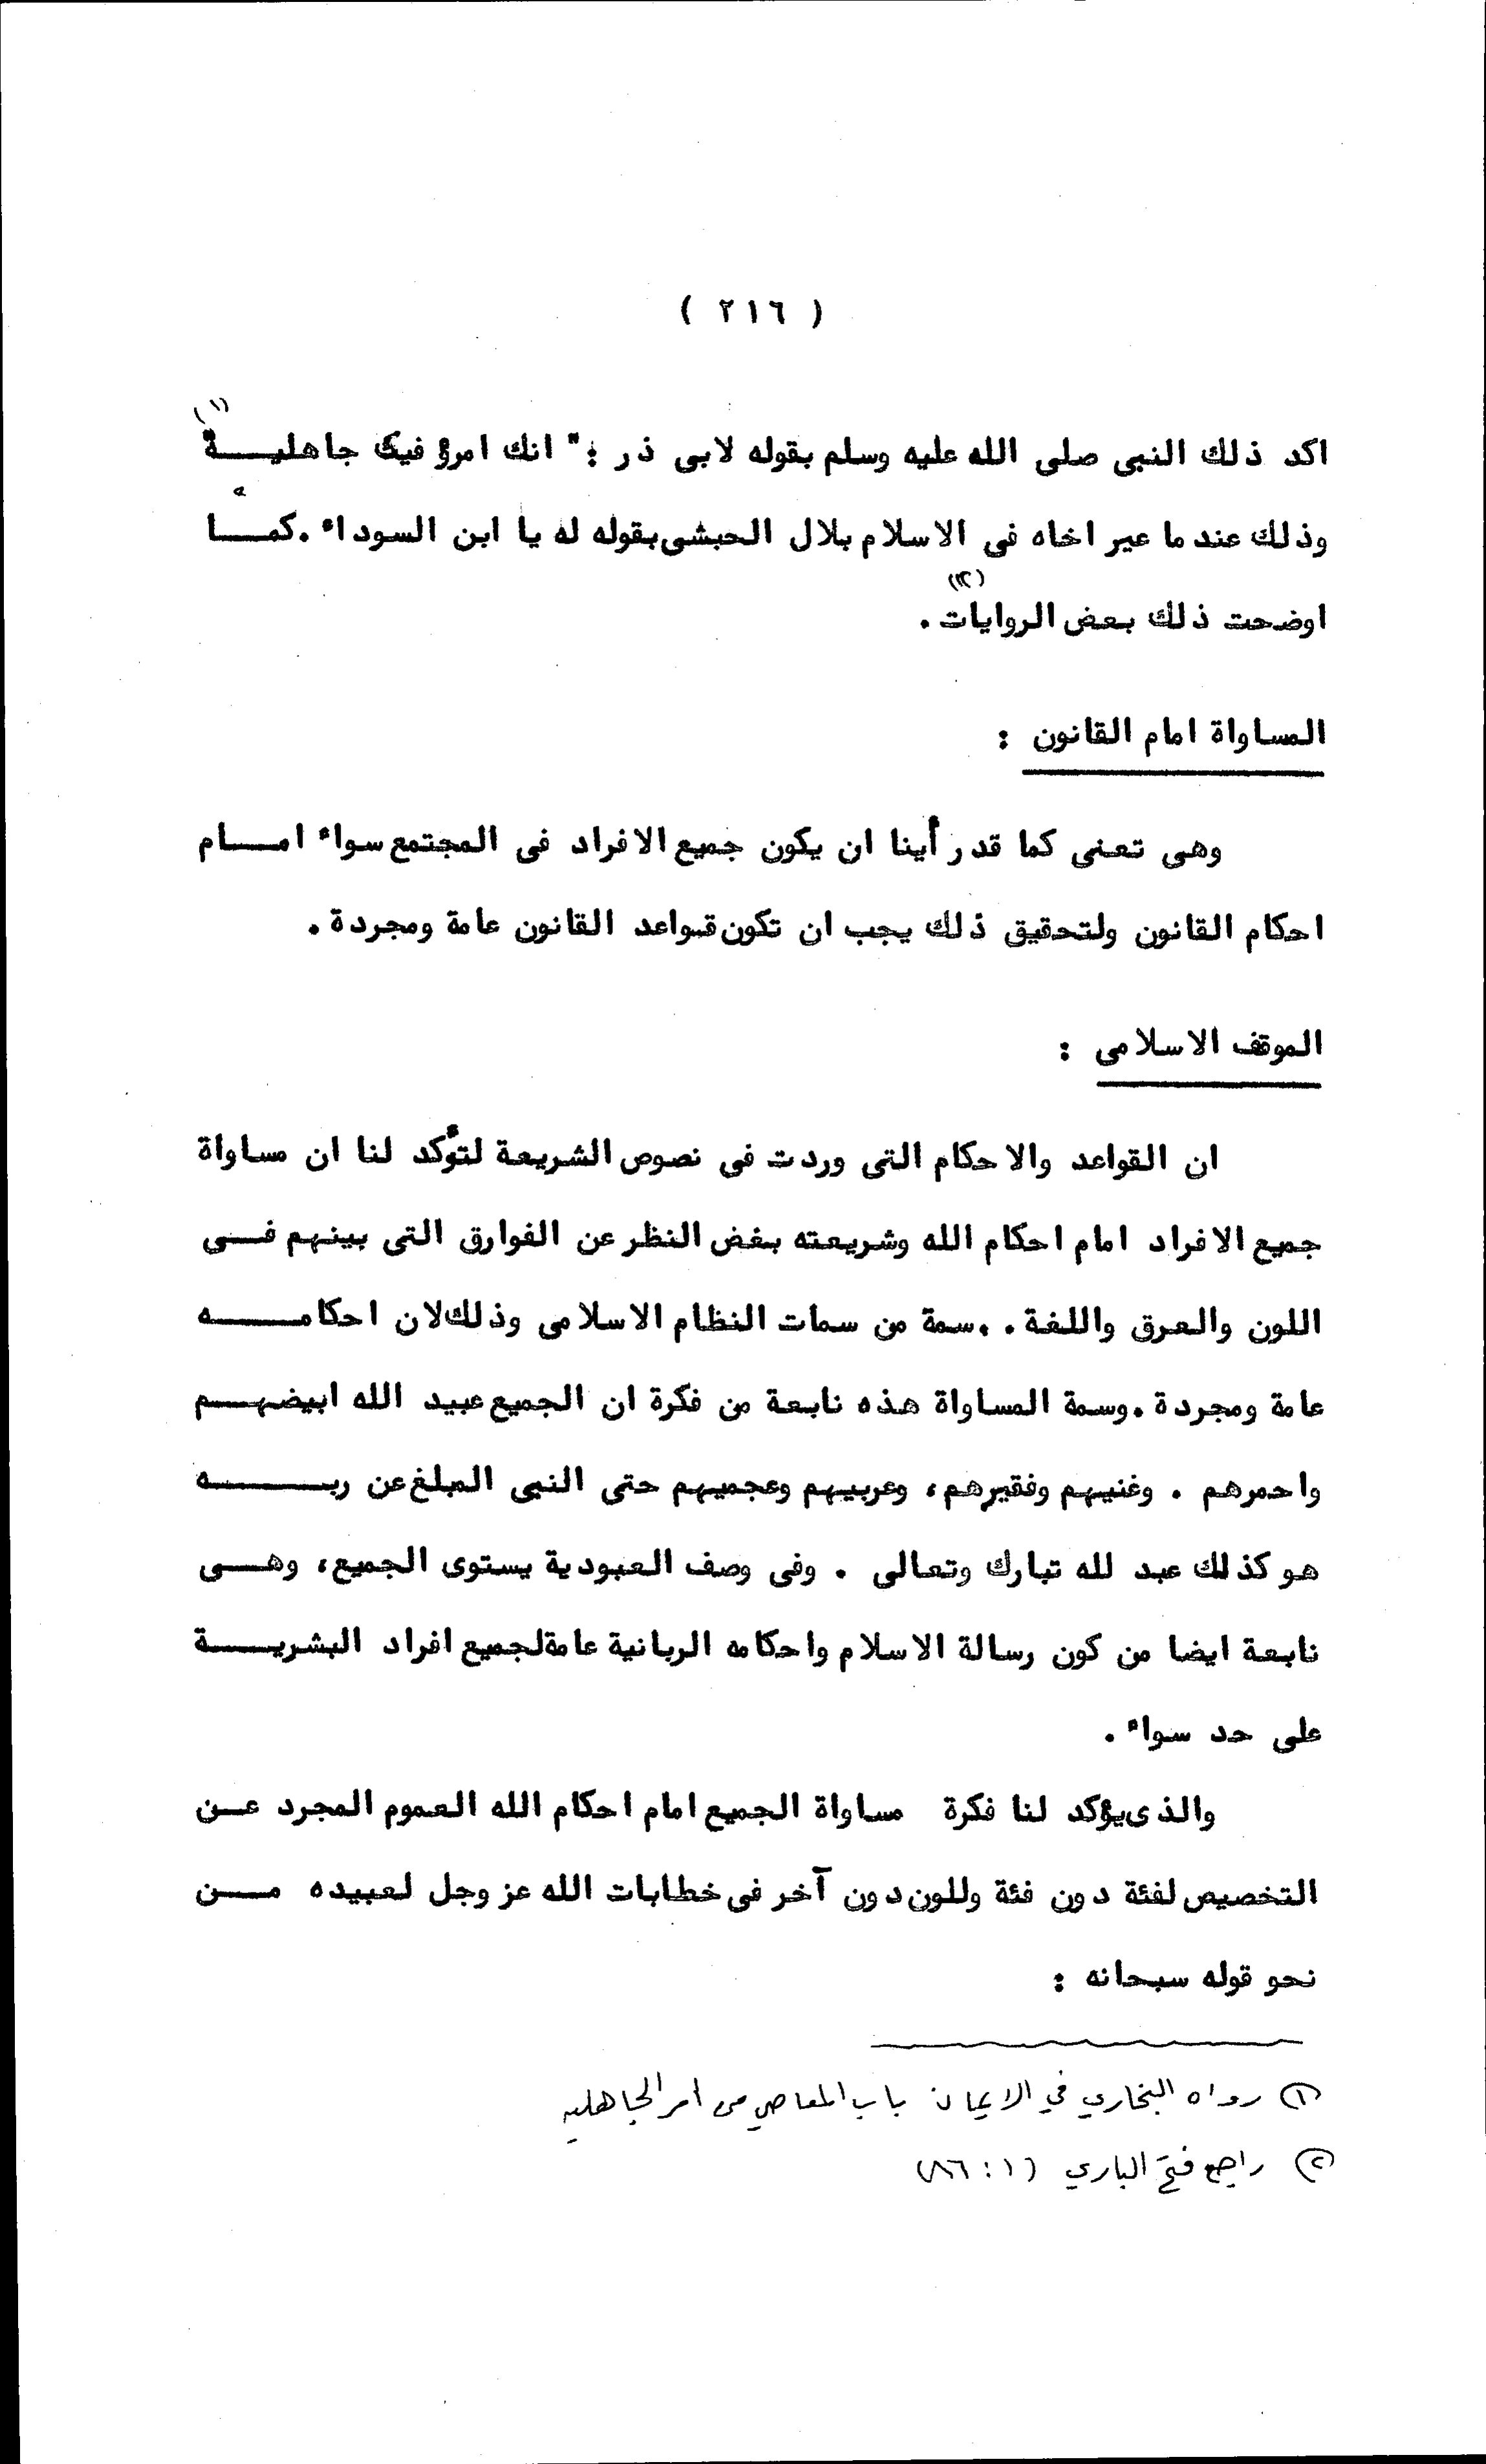 ( ٢١٦ )
اكد ذلك النبى صلى الله عليه وسلم بقوله لابى ذر : " انك امرؤ فيك جاهليـــة" (١)
وذلك عندما عير اخاه فى الاسلام بلال الحبشى بقوله له يا ابن السوداء .كمـــا
اوضحت ذلك بعض الروايات (٢) .
المساواة امام القانون :
وهى تعنى كما قد رأينا ان يكون جميع الافراد فى المجتمع سواء امـــام
احكام القانون ولتحقيق ذلك يجب ان تكون قواعد القانون عامة ومجردة .
الموقف الاسلامى :
ان القواعد والاحكام التى وردت فى نصوص الشريعة لتؤكد لنا ان مساواة
جميع الافراد امام احكام الله وشريعته بغض النظر عن الفوارق التى بينهم فـــى
اللون والعرق واللغة . .سمة من سمات النظام الاسلامى وذلك لان احكامـــــه
عامة ومجردة .وسمة المساواة هذه نابعة من فكرة ان الجميع عبيد الله ابيضهـــم
واحمرهم . وغنيهم وفقيرهم، وعربيهم وعجميهم حتى النبى المبلغ عن ربــــــه
هو كذلك عبد لله تبارك وتعالى . وفى وصف العبودية يستوى الجميع، وهـــى
نابعة ايضا من كون رسالة الاسلام واحكامه الربانية عامة لجميع افراد البشريـــــة
على حد سواء .
والذى يؤكد لنا فكرة مساواة الجميع امام احكام الله العموم المجرد عــن
التخصيص لفئة دون فئة وللون دون آخر فى خطابات الله عز وجل لعبيده مـــن
نحو قوله سبحانه :
(١) رواه البخاري في الايمان باب المعاصي من امر الجاهليه
(٢) راجع فتح الباري (١ : ٨٦)